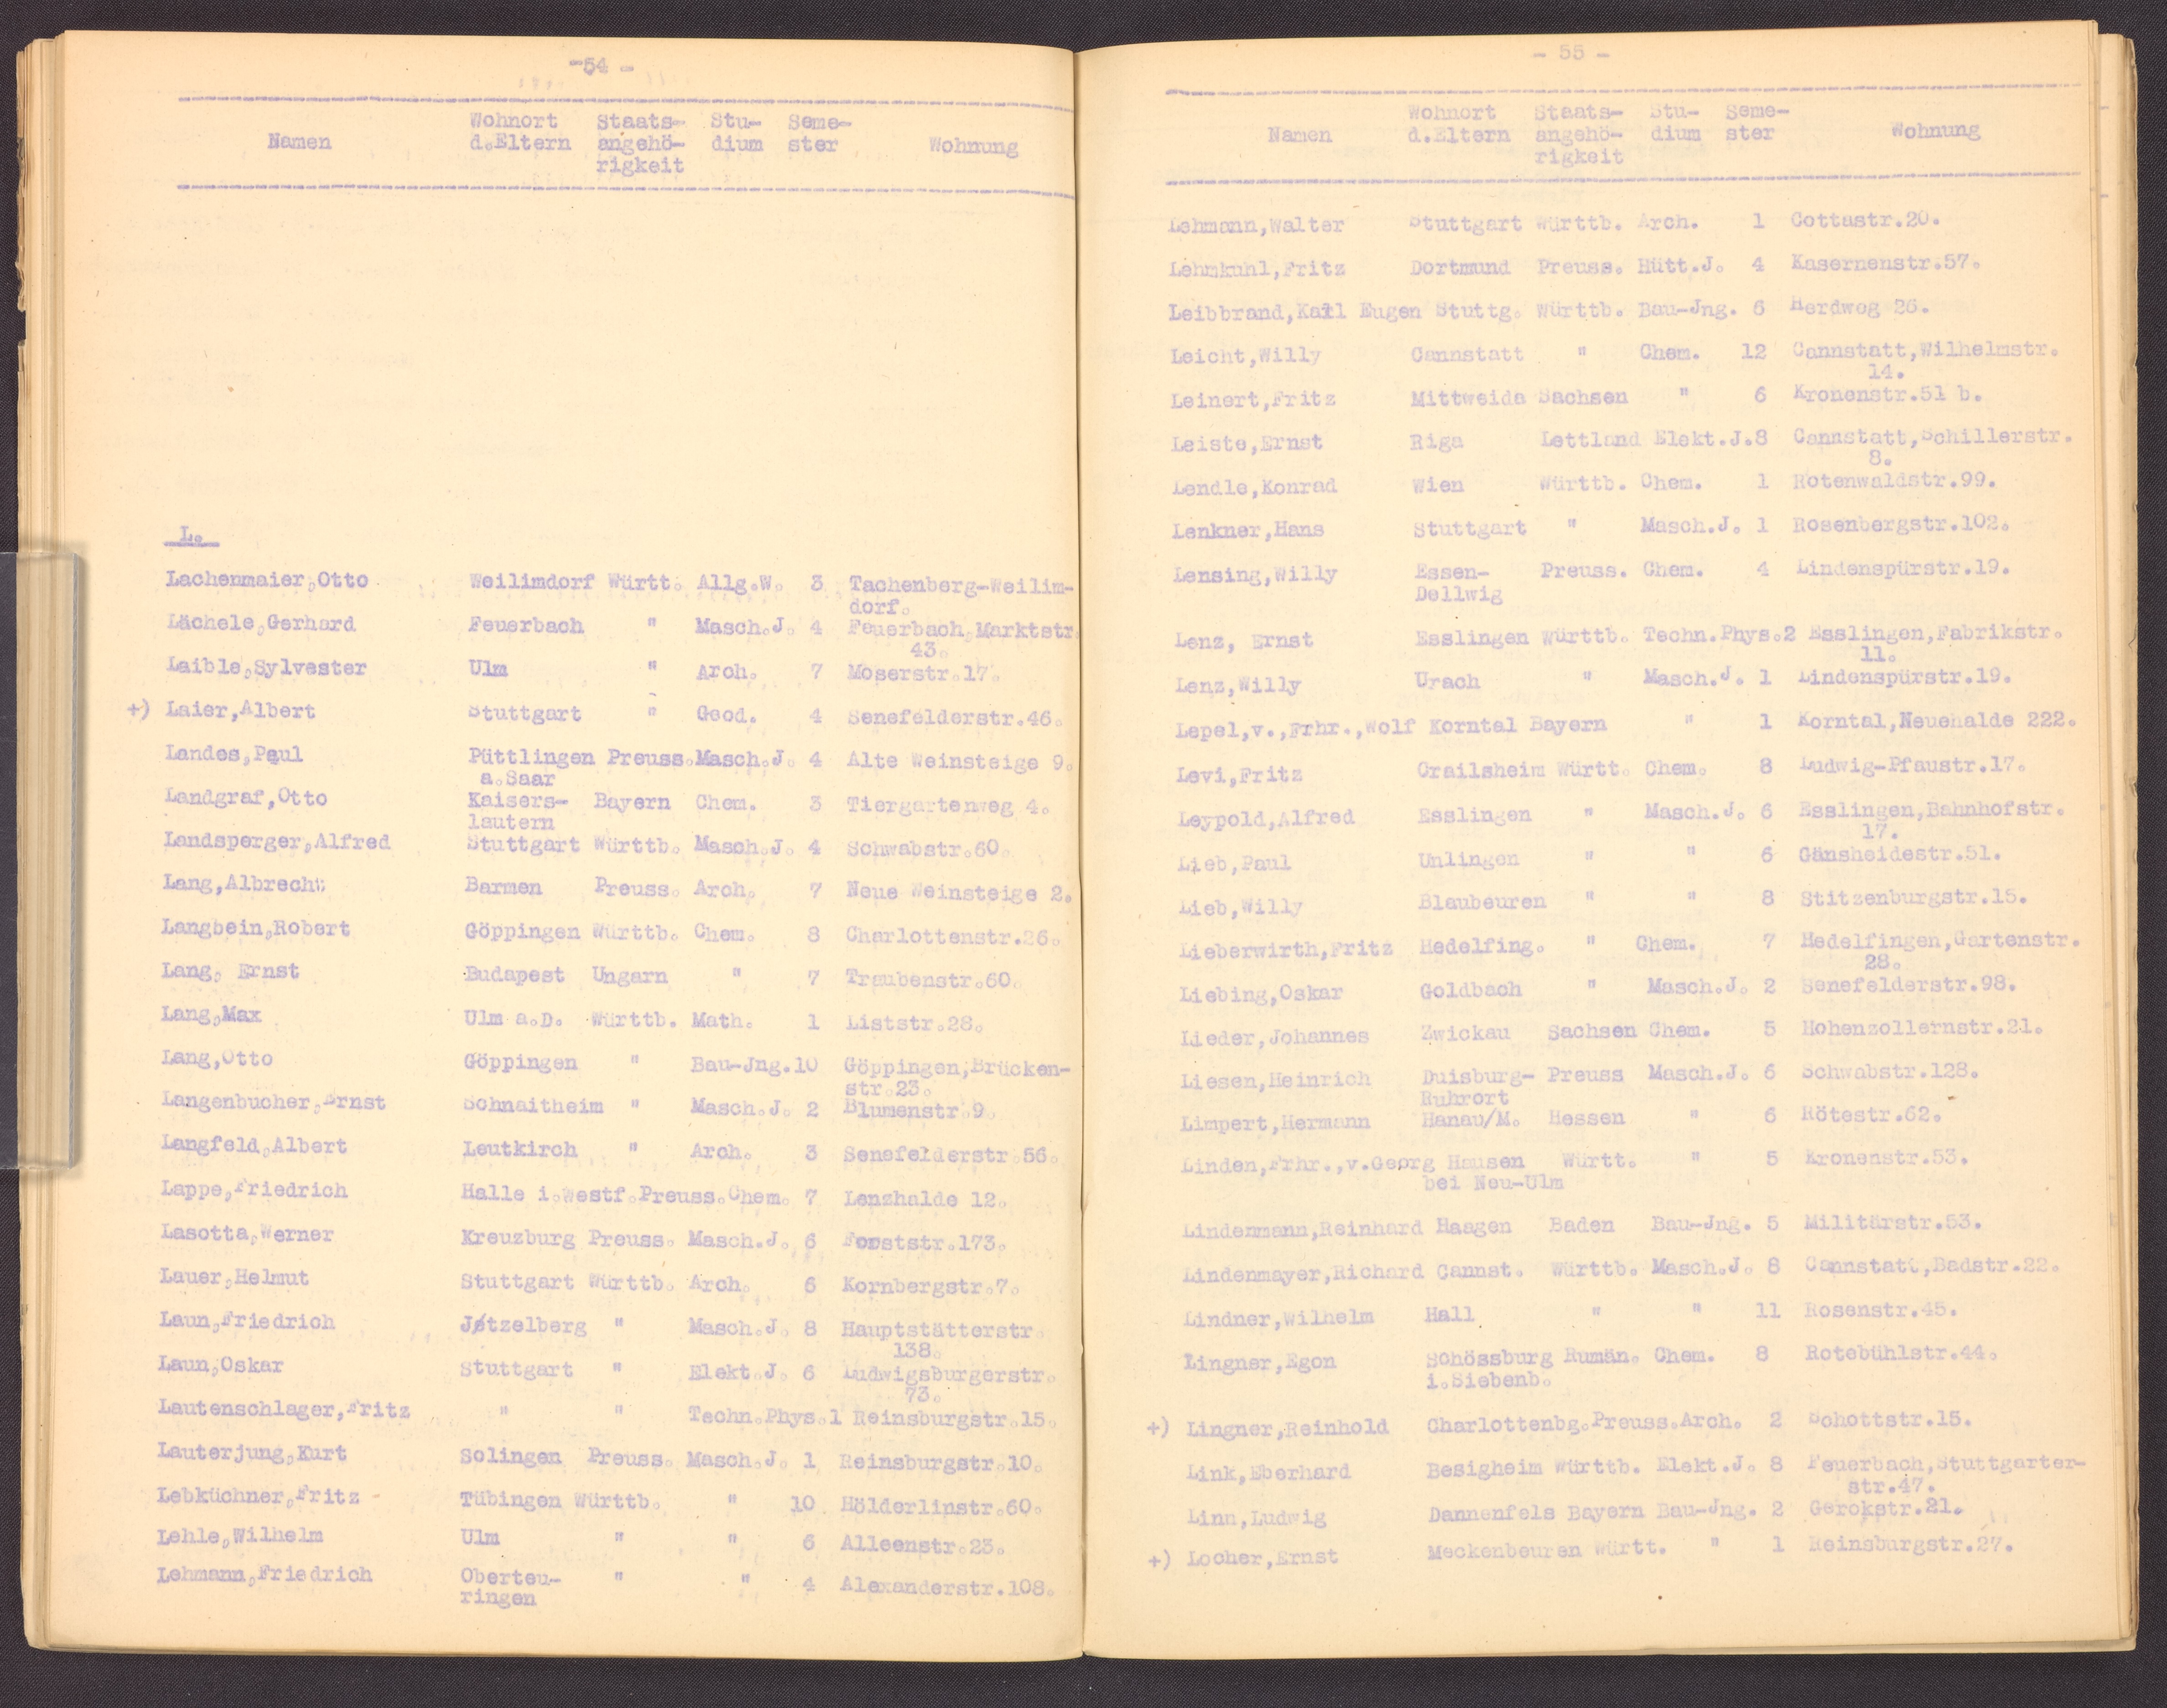 -54 -
Namen Wohnort d.Eltern Staats-angehö-rigkeit Stu-dium Seme-ster Wohnung
L.
Lachenmaier,Otto Weilimdorf Württ. Allg.W. 3 Tachenberg-Weilim-
dorf.
Lächele,Gerhard Feuerbach " Masch.J. 4 Feuerbach,Marktstr.
43.
Laible,Sylvester Ulm " Arch. 7 Moserstr.17.
+) Laier,Albert Stuttgart " Geod. 4 Senefelderstr.46.
Landes,Paul Püttlingen Preuss.Masch.J. 4 Alte Weinsteige 9.
a.Saar
Landgraf,Otto Kaisers- Bayern Chem. 3 Tiergartenweg 4.
lautern
Landsperger,Alfred Stuttgart Württb. Masch.J. 4 Schwabstr.60.
Lang,Albrecht Barmen Preuss. Arch. 7 Neue Weinsteige 2.
Langbein,Robert Göppingen Württb. Chem. 8 Charlottenstr.26.
Lang, Ernst Budapest Ungarn " 7 Traubenstr.60.
Lang,Max Ulm a.D. Württb. Math. 1 Liststr.28.
Lang,Otto Göppingen " Bau-Jng.10 Göppingen,Brücken-
str.23.
Langenbucher,Ernst Schnaitheim " Masch.J. 2 Blumenstr.9.
Langfeld,Albert Leutkirch " Arch. 3 Senefelderstr.56.
Lappe,Friedrich Halle i.Westf.Preuss.Chem. 7 Lenzhalde 12.
Lasotta,Werner Kreuzburg Preuss. Masch.J. 6 Forststr.173.
Lauer,Helmut Stuttgart Württb. Arch. 6 Kornbergstr.7.
Laun,Friedrich Jøtzelberg " Masch.J. 8 Hauptstätterstr.
138.
Laun,Oskar Stuttgart " Elekt.J. 6 Ludwigsburgerstr.
73.
Lautenschlager,Fritz " " Techn.Phys.1 Reinsburgstr.15.
Lauterjung,Kurt Solingen Preuss. Masch.J. 1 Reinsburgstr.10.
Lebküchner,Fritz Tübingen Württb. " 10 Hölderlinstr.60.
Lehle,Wilhelm Ulm " " 6 Alleenstr.23.
Lehmann,Friedrich Oberteu- " " 4 Alexanderstr.108.
ringen
- 55 -
Namen Wohnort d.Eltern Staats-angehö-rigkeit Stu-dium Seme-ster Wohnung
Lehmann,Walter Stuttgart Württb. Arch. 1 Cottastr.20.
Lehmkuhl,Fritz Dortmund Preuss. Hütt.J. 4 Kasernenstr.57.
Leibbrand,Karl Eugen Stuttg. Württb. Bau-Jng. 6 Herdweg 26.
Leicht,Willy Cannstatt " Chem. 12 Cannstatt,Wilhelmstr.
14.
Leinert,Fritz Mittweida Sachsen " 6 Kronenstr.51 b.
Leiste,Ernst Riga Lettland Elekt.J.8 Cannstatt,Schillerstr.
8.
Lendle,Konrad Wien Württb. Chem. 1 Rotenwaldstr.99.
Lenkner,Hans Stuttgart " Masch.J. 1 Rosenbergstr.102.
Lensing,Willy Essen- Preuss. Chem. 4 Lindenspürstr.19.
Dellwig
Lenz, Ernst Esslingen Württb. Techn.Phys.2 Esslingen,Fabrikstr.
11.
Lenz,Willy Urach " Masch.J. 1 Lindenspürstr.19.
Lepel,v.,Frhr.,Wolf Korntal Bayern " 1 Korntal,Neuehalde 222.
Levi,Fritz Crailsheim Württ. Chem. 8 Ludwig-Pfaustr.17.
Leypold,Alfred Esslingen " Masch.J. 6 Esslingen,Bahnhofstr.
17.
Lieb,Paul Unlingen " " 6 Gänsheidestr.51.
Lieb,Willy Blaubeuren " " 8 Stitzenburgstr.15.
Lieberwirth,Fritz Hedelfing. " Chem. 7 Hedelfingen,Gartenstr.
28.
Liebing,Oskar Goldbach " Masch.J. 2 Senefelderstr.98.
Lieder,Johannes Zwickau Sachsen Chem. 5 Hohenzollernstr.21.
Liesen,Heinrich Duisburg- Preuss Masch.J. 6 Schwabstr.128.
Ruhrort
Limpert,Hermann Hanau/M. Hessen " 6 Rötestr.62.
Linden,Frhr.,v.Georg Hausen Württ. " 5 Kronenstr.53.
bei Neu-Ulm
Lindenmann,Reinhard Haagen Baden Bau-Jng. 5 Militärstr.53.
Lindenmayer,Richard Cannst. Württb. Masch.J. 8 Cannstatt,Badstr.22.
Lindner,Wilhelm Hall " " 11 Rosenstr.45.
Lingner,Egon Schössburg Rumän. Chem. 8 Rotebühlstr.44.
i.Siebenb.
+) Lingner,Reinhold Charlottenbg.Preuss.Arch. 2 Schottstr.15.
Link,Eberhard Besigheim Württb. Elekt.J. 8 Feuerbach,Stuttgarter-
str.47.
Linn,Ludwig Dannenfels Bayern Bau-Jng. 2 Gerokstr.21.
+) Locher,Ernst Meckenbeuren Württ. " 1 Reinsburgstr.27.